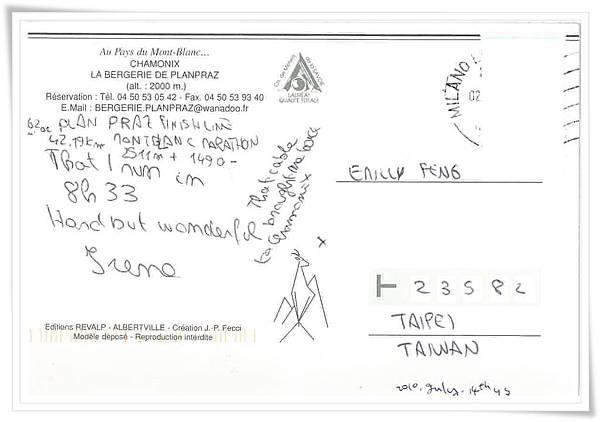 Au Pays du Mont-Blanc...
CHAMONIX
LA BERGERIE DE PLANPRAZ
(alt. : 2000 m.)
Réservation : Tél. 04 50 53 05 42 - Fax. 04 50 53 93 40
E.Mail : BERGERIE.PLANPRAZ@wanadoo.fr
PLAN PRAZ FINISH LINE
42.19Km MONT BLANC MARATHON
2511m + 1490-
That I run in
8h 33
Hard but wonderful
Irene
That cable
brought me back
to Chamonix
LAURÉAT
QUALITÉ TOTALE
MILANO
02
EMILLY FENG
23582
TAIPEI
TAIWAN
2010. July. 14th
Editions REVALP - ALBERTVILLE - Création J.-P. Fecci
Modèle déposé - Reproduction interdite